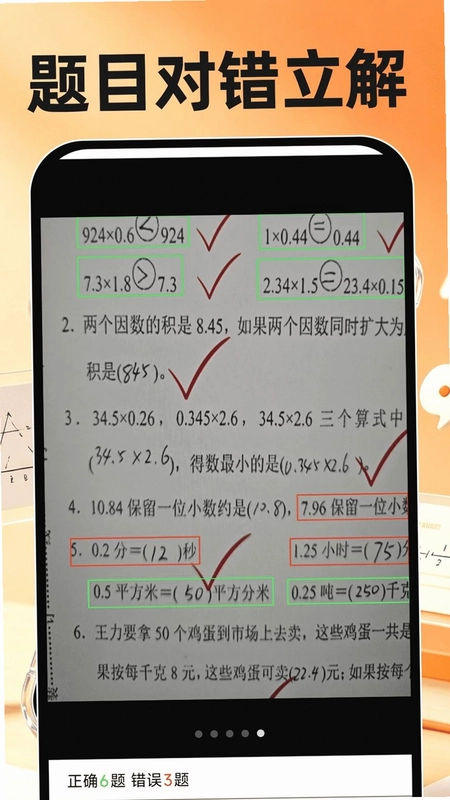 题目对错立解
924×0.6<924 1×0.44=0.44
7.3×1.8>7.3 2.34×1.5=23.4×0.15
2. 两个因数的积是 8.45，如果两个因数同时扩大为
积是(845)。
3. 34.5×0.26，0.345×2.6，34.5×2.6 三个算式中
(34.5×2.6)，得数最小的是(0.345×2.6)。
4. 10.84 保留一位小数约是(10.8)，7.96 保留一位小数
5. 0.2 分=(12)秒 1.25 小时=(75)分
0.5 平方米=(50)平方分米 0.25 吨=(250)千克
6. 王力要拿 50 个鸡蛋到市场上去卖，这些鸡蛋一共是
果按每千克 8 元，这些鸡蛋可卖(22.4)元；如果按每个
正确6题 错误3题